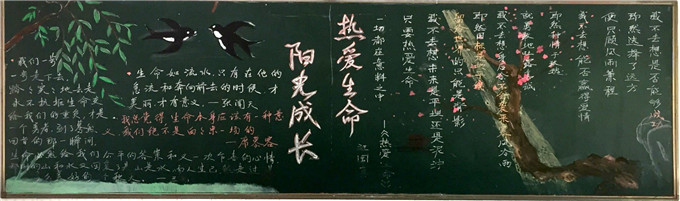 热爱生命
阳光成长
我不去想是否能够成功
既然选择了远方
便只顾风雨兼程
我不去想能否赢得爱情
既然钟情于玫瑰
就勇敢地吐露真诚
我不去想身后会不会袭来寒风冷雨
既然目标是地平线
留给世界的只能是背影
我不去想未来是平坦还是泥泞
只要热爱生命
一切都在意料之中
——《热爱生命》
汪国真
生命如流水,只有在他的
急流和奔向前去的时候,才
美丽,才有意义。—张闻天
我总觉得,生命本身应该有一种意
义,我们绝不是白白来一场的
—席慕蓉
我们一步
一步走下去,
踏踏实实地去走
永不抗拒生命交
给我们的重负,才是
一个勇者。到了蓦然
回首的那一瞬间,
生命必然给我们公平的答案和又一次乍喜的心情